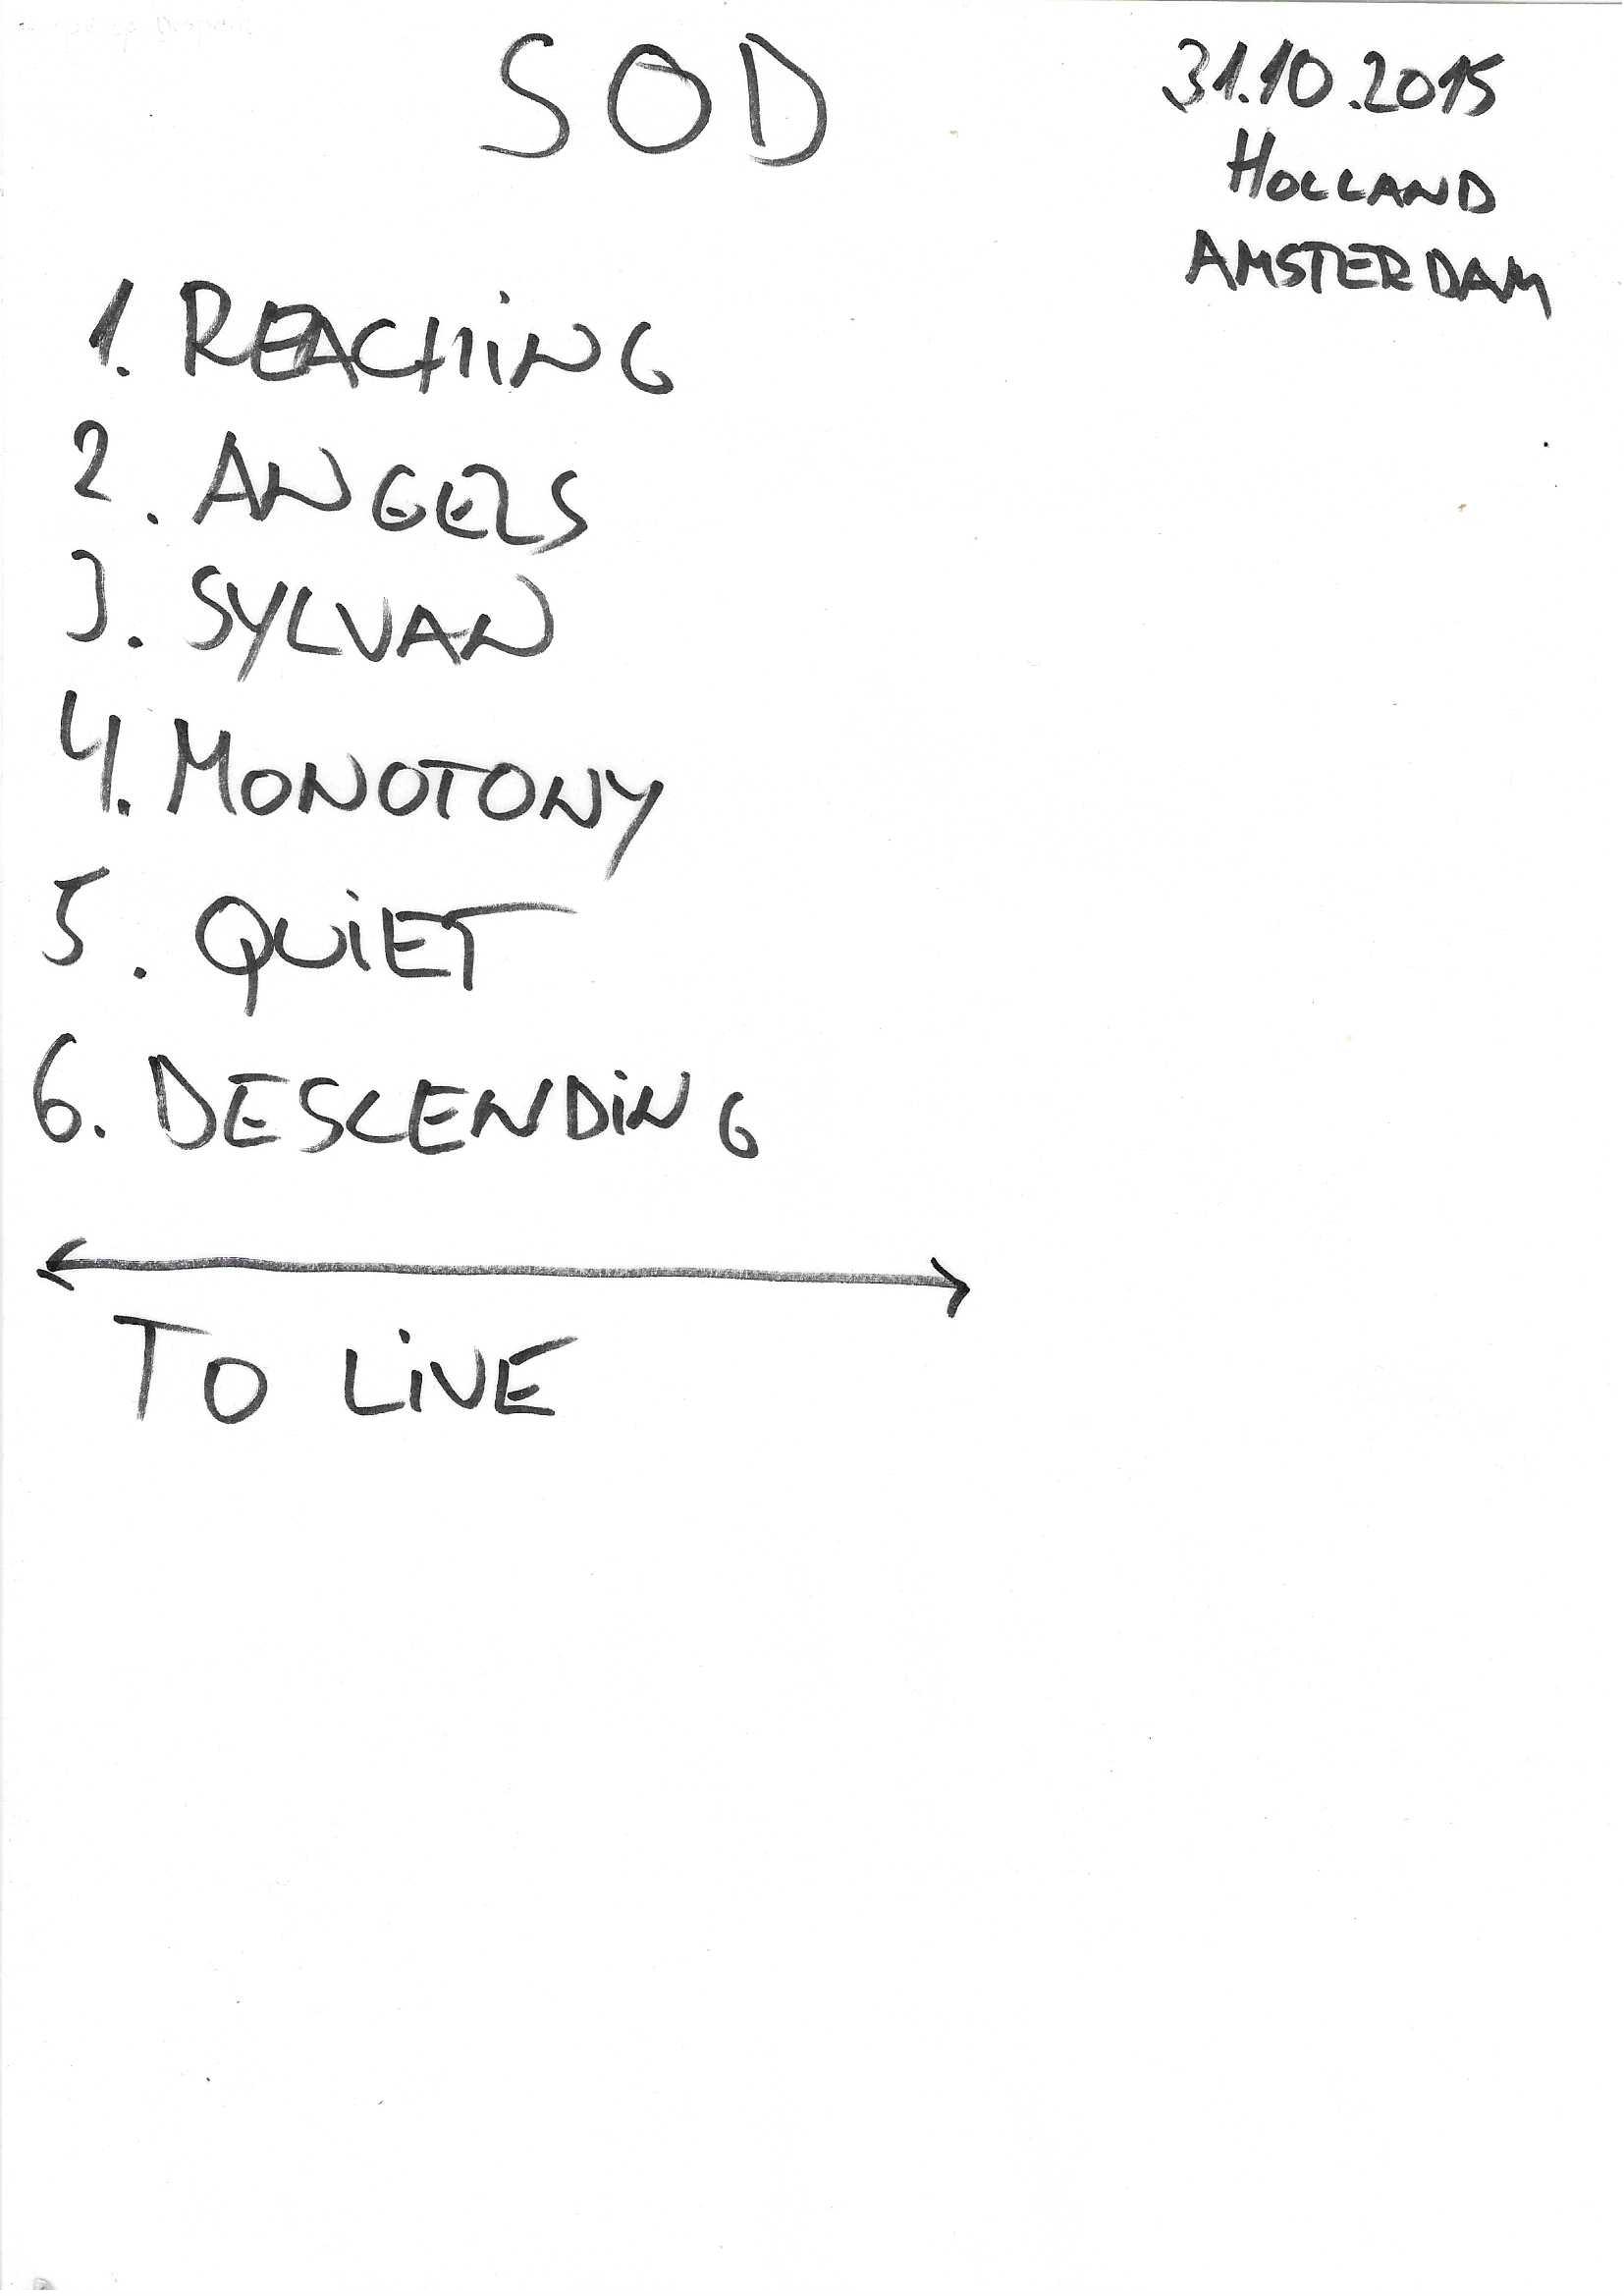 SOD
31.10.2015
HOLLAND
AMSTERDAM
1. REACHiNG
2. ANGELS
3. SYLVAN
4. MONOTONY
5. QUiET
6. DESCENDiNG
TO LiVE